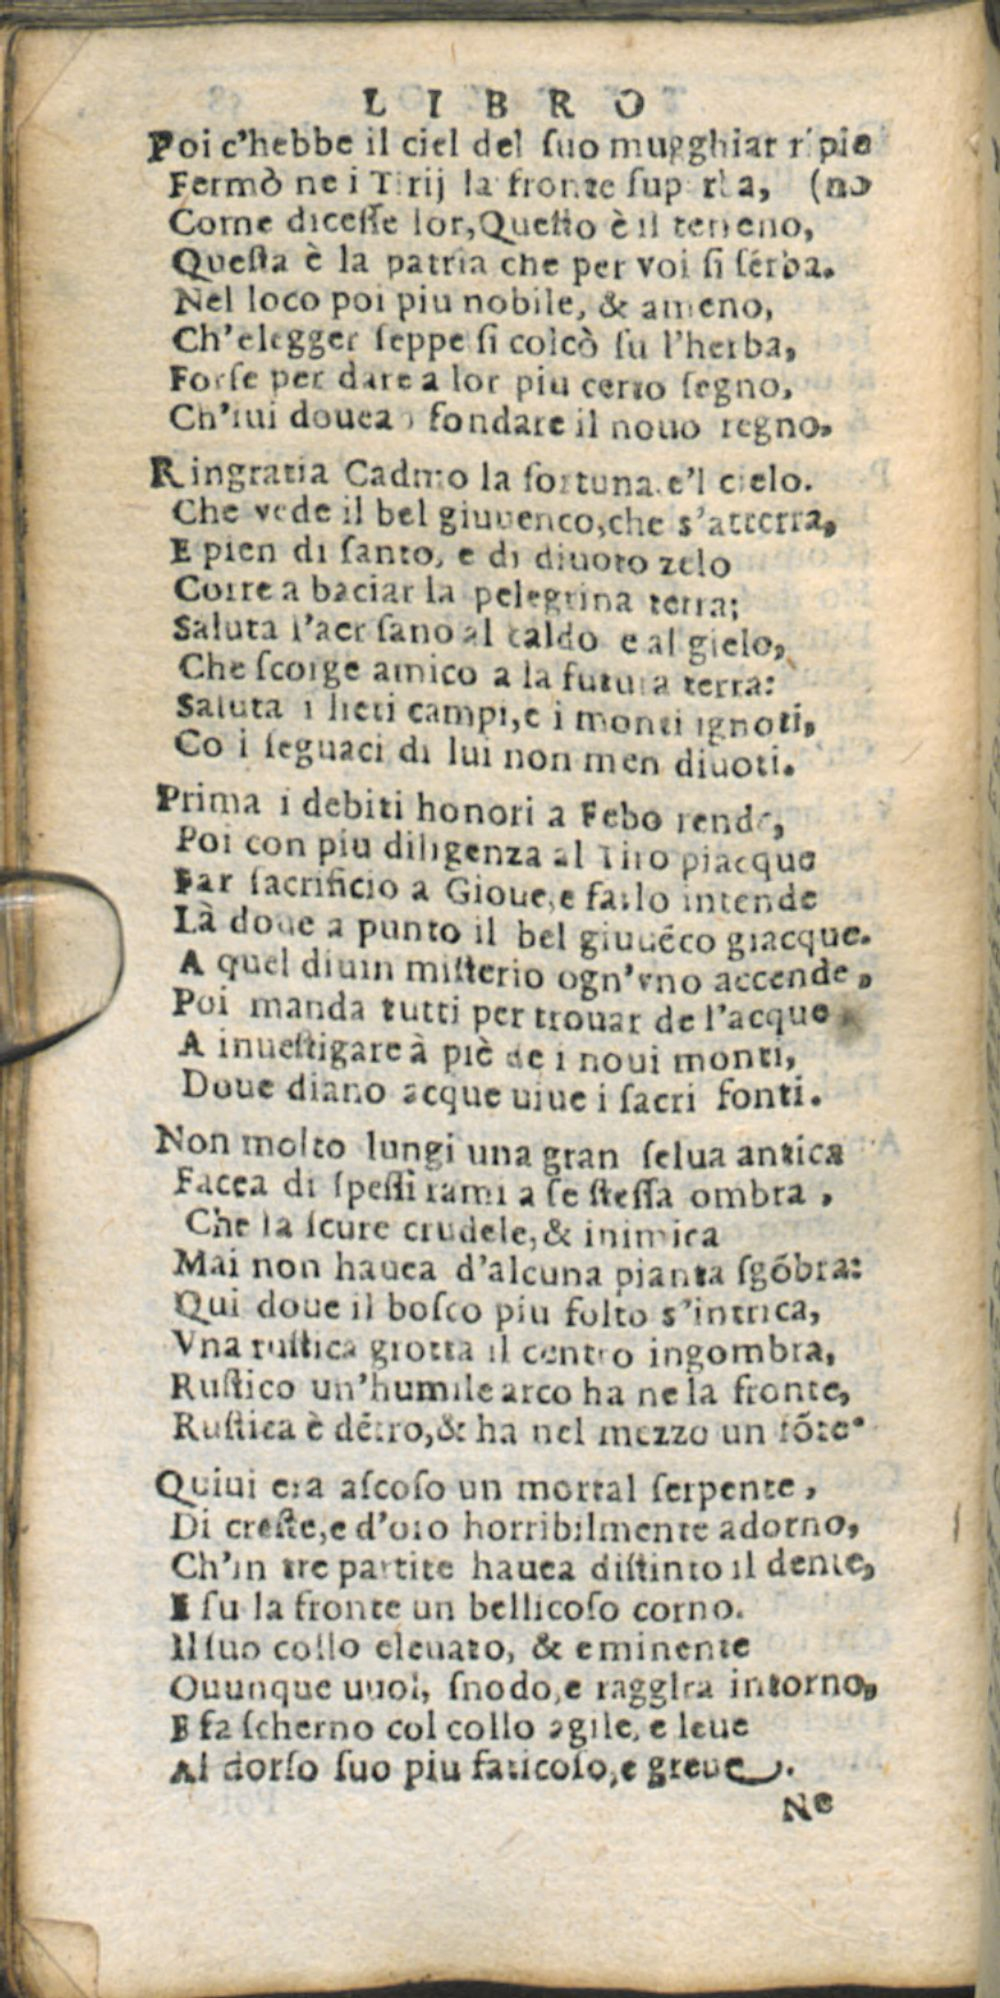 LIBRO
Poi c'hebbe il ciel del ſuo mugghiar ripie
Fermò ne i Tirij la fronte ſuperba, (no
Come diceſſe lor, Queſto è il terreno,
Queſta è la patria che per voi ſi ſerba.
Nel loco poi piu nobile, & ameno,
Ch'elegger ſeppe ſi colcò ſu l'herba,
Forſe per dare a lor piu certo ſegno,
Ch'iui doueano fondare il nouo regno.
Ringratia Cadmo la fortuna e'l cielo.
Che vede il bel giuuenco, che s'atterra,
E pien di ſanto, e di diuoto zelo
Corre a baciar la pelegrina terra;
Saluta l'aer ſano al caldo e al gielo,
Che ſcorge amico a la futura terra:
Saluta i lieti campi, e i monti ignoti,
Co i ſeguaci di lui non men diuoti.
Prima i debiti honori a Febo rende,
Poi con piu diligenza al Tiro piacque
Far ſacrificio a Gioue, e farlo intende
Là doue a punto il bel giuuẽco giacque.
A quel diuin miſterio ogn'vno accende,
Poi manda tutti per trouar de l'acque
A inueſtigare à piè de i noui monti,
Doue diano acque uiue i ſacri fonti.
Non molto lungi una gran ſelua antica
Facea di ſpeſſi rami a ſe ſteſſa ombra,
Che la ſcure crudele, & inimica
Mai non hauea d'alcuna pianta ſgõbra:
Qui doue il boſco piu folto s'intrica,
Vna ruſtica grotta il centro ingombra,
Ruſtico un'humile arco ha ne la fronte,
Ruſtica è dẽtro, & ha nel mezzo un fõte.
Quiui era aſcoſo un mortal ſerpente,
Di creſte, e d'oro horribilmente adorno,
Ch'in tre partite hauea diſtinto il dente,
E ſu la fronte un bellicoſo corno.
Il ſuo collo eleuato, & eminente
Ouunque uuol, ſnodo, e raggira intorno,
E fa ſcherno col collo agile, e leue
Al dorſo ſuo piu faticoſo, e greue.
Ne